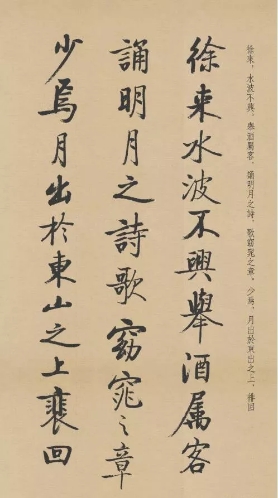 徐來，水波不興。舉酒屬客，誦明月之詩，歌窈窕之章。少焉，月出於東山之上，徘徊
徐来水波不興舉酒属客
誦明月之詩歌窈窕之章
少焉月出於東山之上裵回